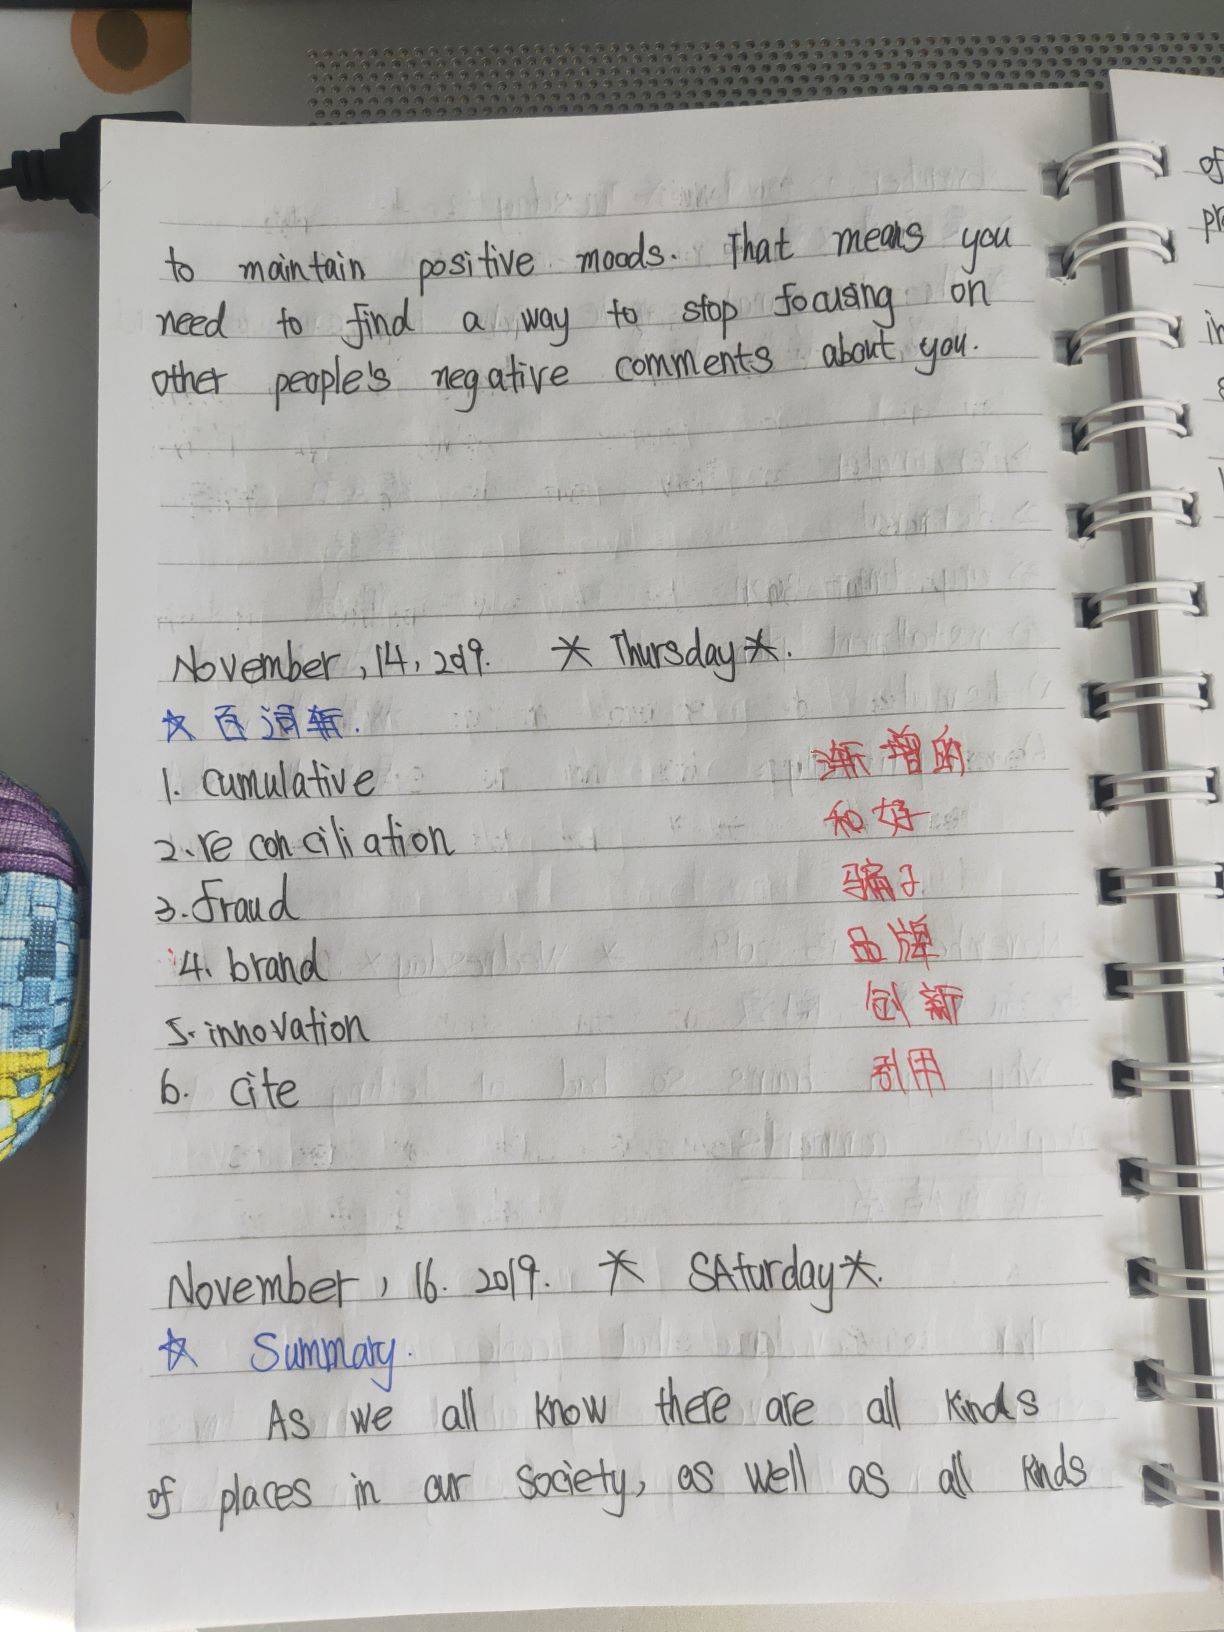 to maintain positive moods. That means you
need to find a way to stop focusing on
other people's negative comments about you.
November, 14, 2019. * Thursday *.
☆ 百词斩.
1. cumulative 渐增的
2. reconciliation 和好
3. fraud 骗子
4. brand 品牌
5. innovation 创新
6. cite 引用
November, 16. 2019. * SAturday *.
☆ Summary.
As we all know there are all kinds
of places in our society, as well as all kinds
of